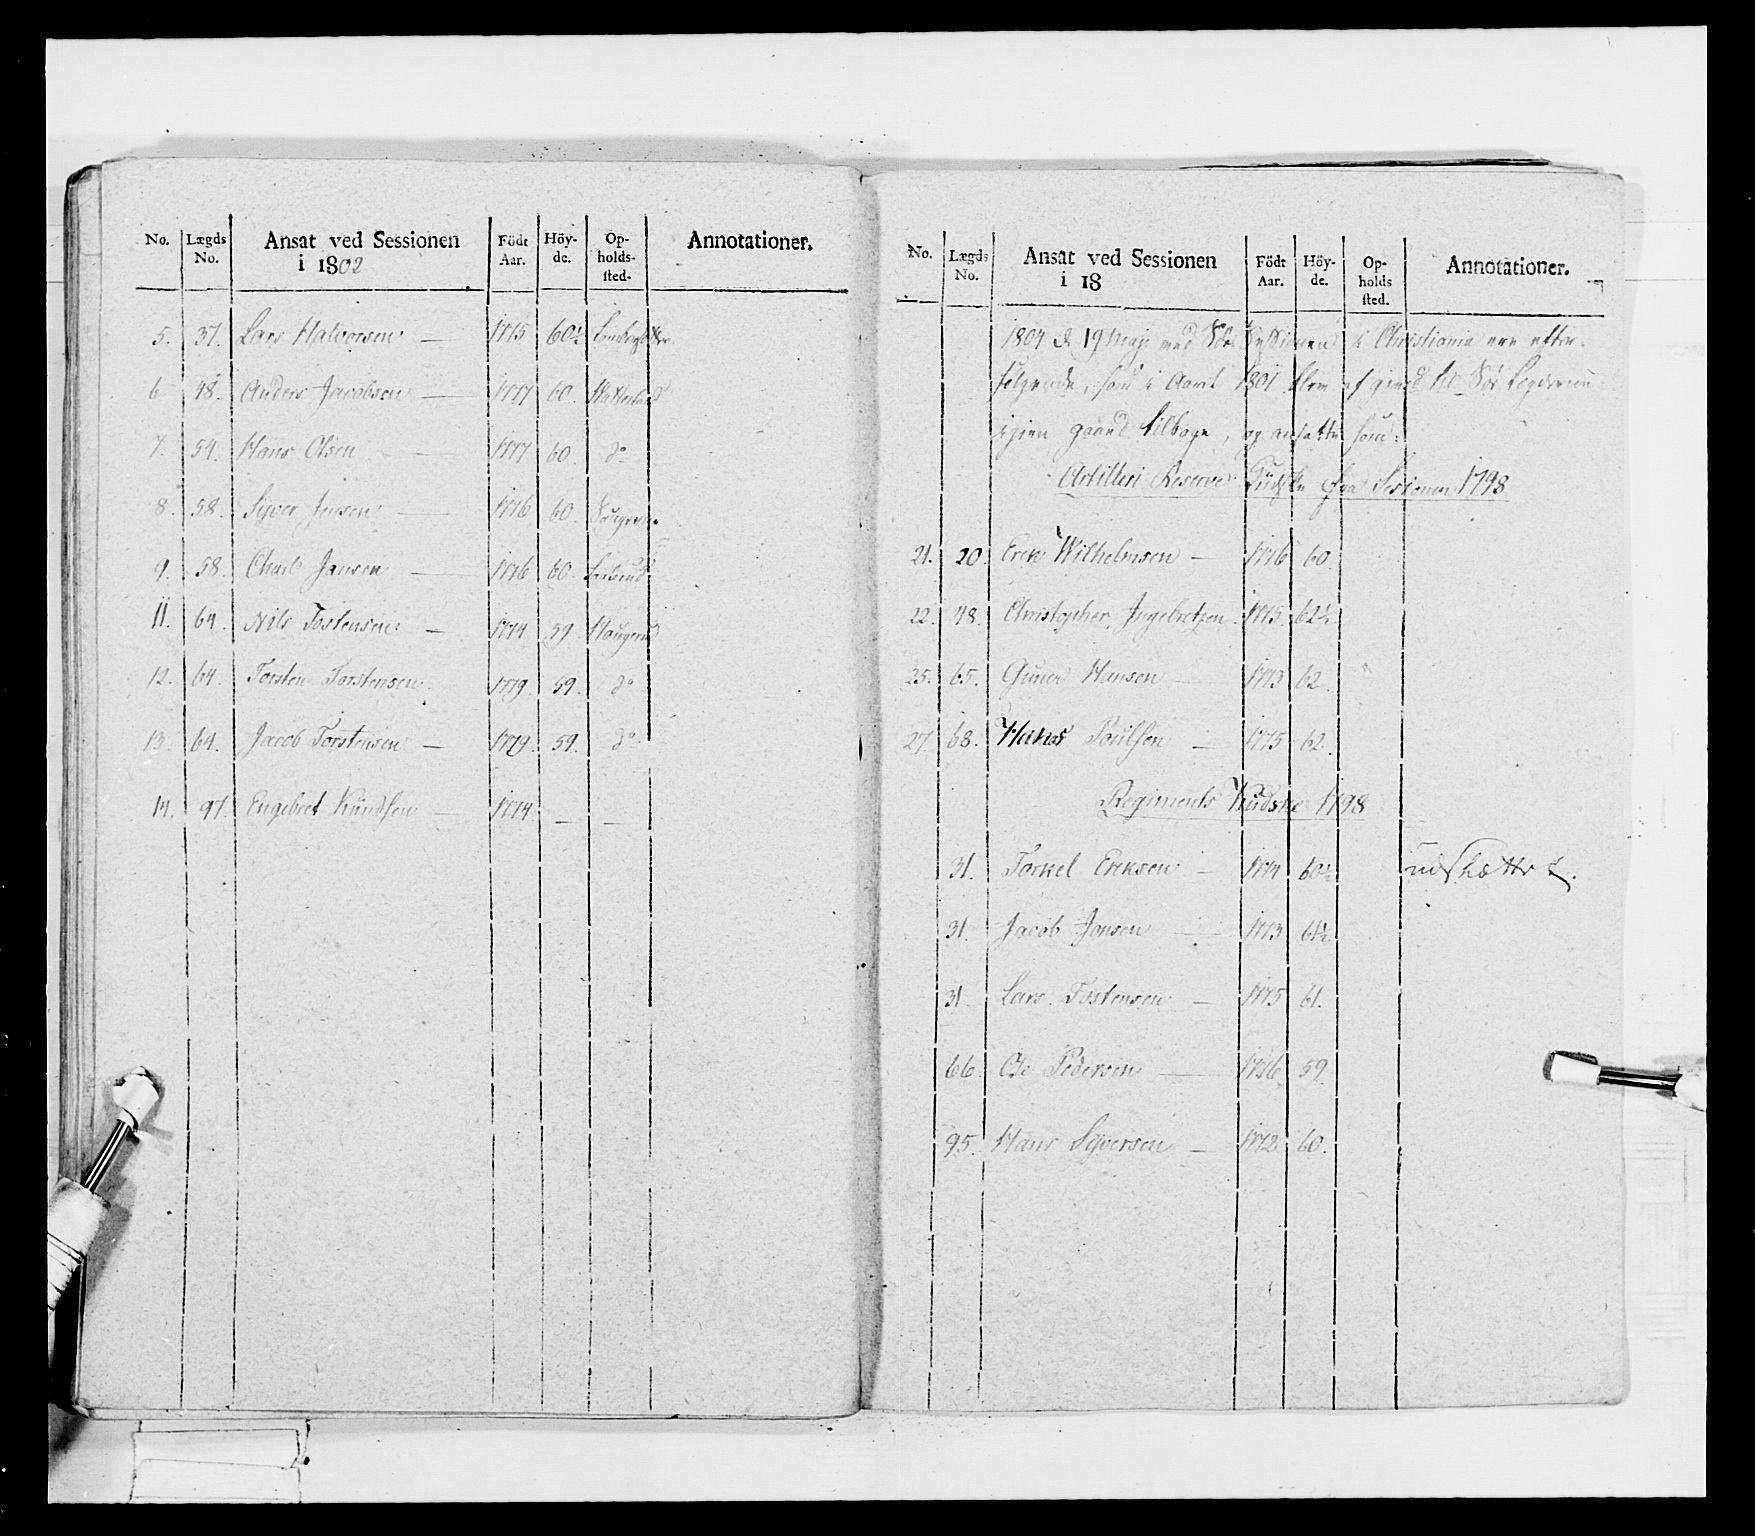 No. Lægds No. Ansat ved Sessionen i 1802 Födt Aar. Höy-de. Op-holds-sted- Annotationer.
5. 37. Lars Halvorsen — 1775 60½
6 48. Anders Jacobsen — 1777 60.
7. 54. Hans Olsen — 1777 60 do
8. 58. Syver Jensen — 1776 60.
9. 58. Charl Jansen — 1776 60.
11. 64. Nils Tostensen — 1774 59. Haugerud
12. 64. Torsten Torstensen 1779. 59. do
13. 64. Jacob Torstensen — 1779. 59. do
14. 97. Engebret Knudsen — 1774. — —
No. Lægds No. Ansat ved Sessionen i 18 Födt Aar. Höy-de. Op-holds sted. Annotationer.
1804 d 19 Maj ved Sessionen i Christiania ere efter-
følgende, som i April 1801 blev afgived til
igien gaaed tilbage, og ansatte som:
Artilleri Reserve Kudske fra Sessionen 1798
21. 20. Erik Wilhelmsen — 1776 60.
22. 48. Christopher Ingebretsen. 1775. 62½
25. 65. Guner Hansen — 1773 62.
27. 68. Hans Poulsen — 1775 62.
Regiments Kudske 1798
31. Torkel Eriksen — 1774 60½ udskættet.
31. Jacob Jonsen — 1773 61½
31. Lars Tostensen — 1775 61.
66. Ole Pedersen — 1776. 59.
95. Hans Syversen — 1772 60.